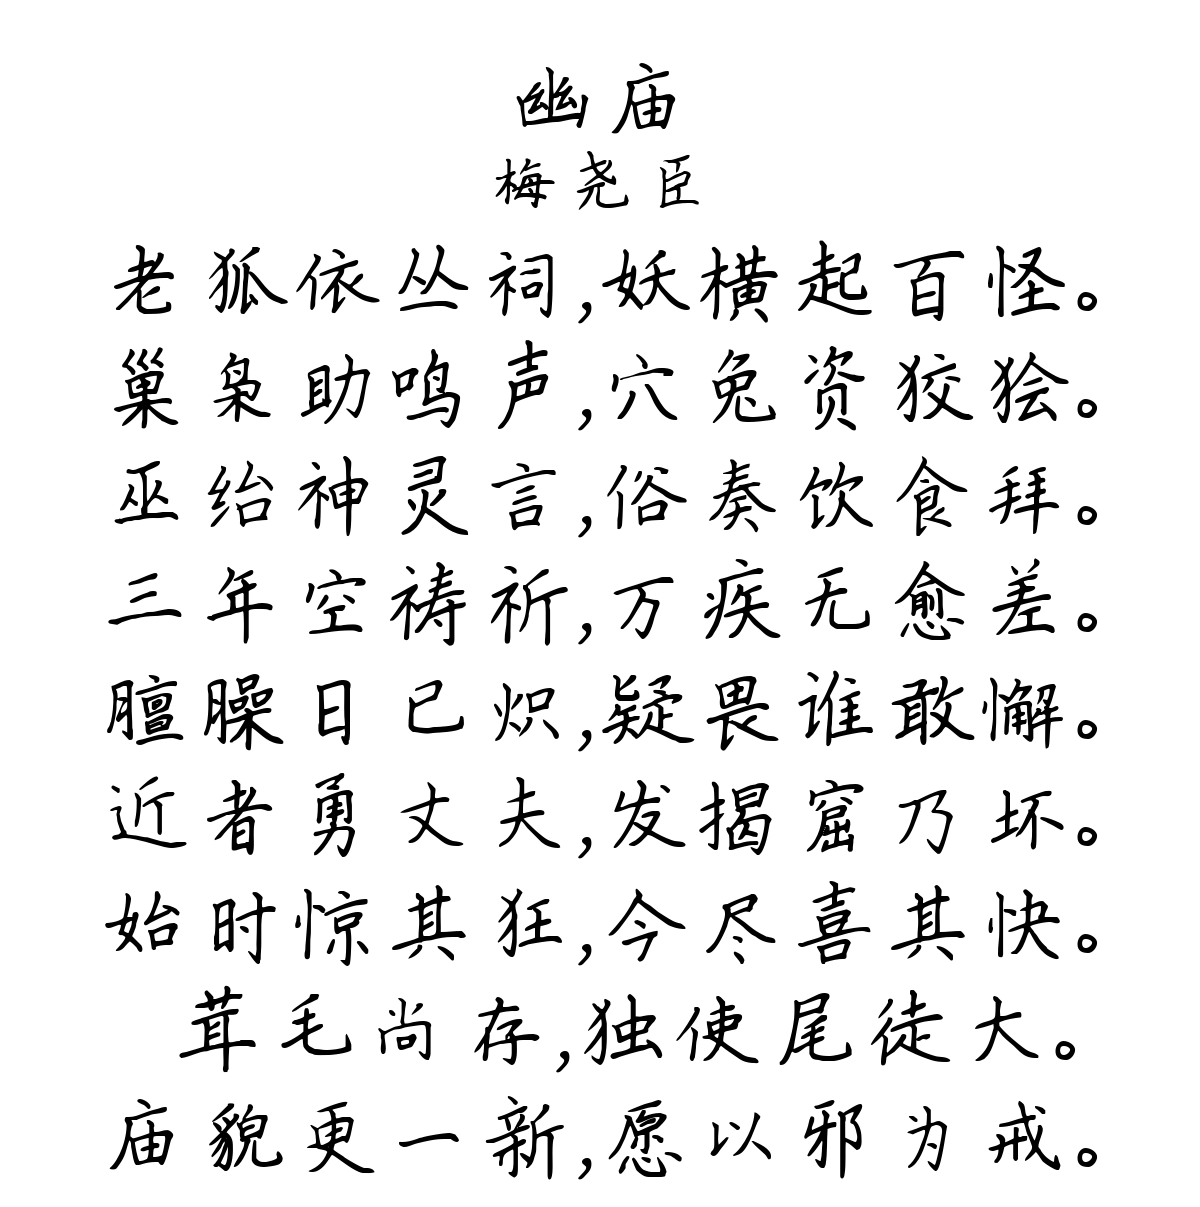 幽庙
梅尧臣
老狐依丛祠,妖横起百怪。
巢枭助鸣声,穴兔资狡狯。
巫绐神灵言,俗奏饮食拜。
三年空祷祈,万疾无愈差。
膻臊日已炽,疑畏谁敢懈。
近者勇丈夫,发揭窟乃坏。
始时惊其狂,今尽喜其快。
茸毛尚存,独使尾徒大。
庙貌更一新,愿以邪为戒。